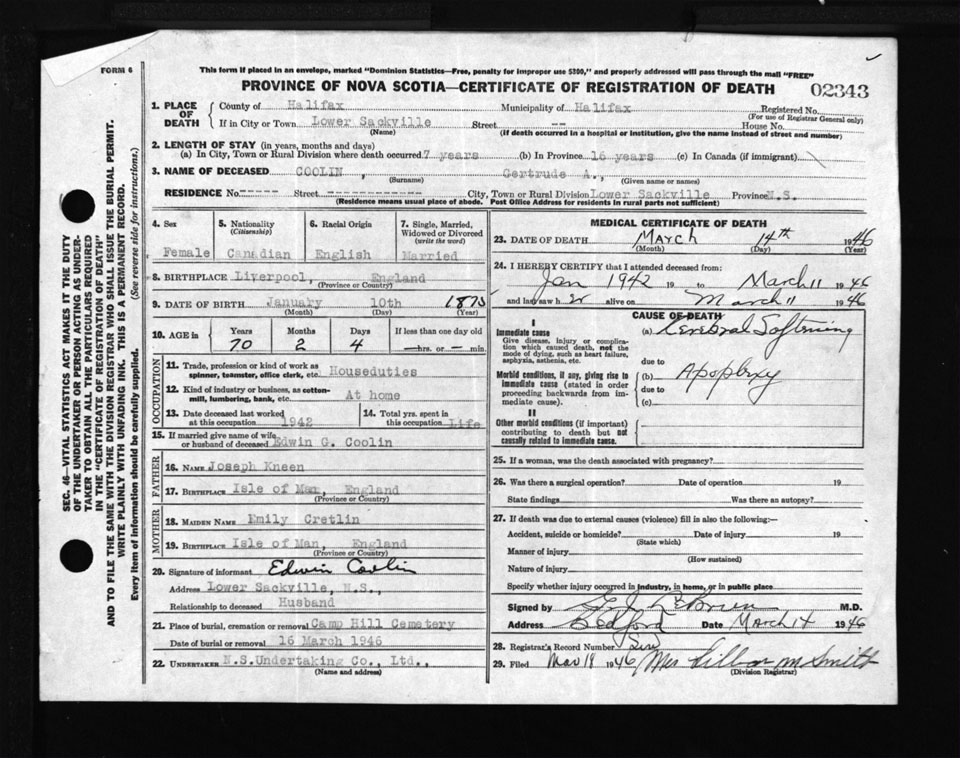 FORM 6
This form if placed in an envelope, marked "Dominion Statistics—Free, penalty for improper use $300," and properly addressed will pass through the mail "FREE"
PROVINCE OF NOVA SCOTIA—CERTIFICATE OF REGISTRATION OF DEATH
02343
1. PLACE OF DEATH
County of Halifax Municipality of Halifax Registered No.
(For use of Registrar General only)
If in City or Town Lower Sackville Street -- House No.
(Name) (If death occurred in a hospital or institution, give the name instead of street and number)
2. LENGTH OF STAY (in years, months and days)
(a) In City, Town or Rural Division where death occurred 7 years (b) In Province 16 years (c) In Canada (if immigrant)
3. NAME OF DECEASED COOLIN , Gertrude A.,
(Surname) (Given name or names)
RESIDENCE No. ----- Street ------------- City, Town or Rural Division Lower Sackville Province N.S.
(Residence means usual place of abode. Post Office Address for residents in rural parts not sufficient)
4. Sex
Female
5. Nationality
(Citizenship)
Canadian
6. Racial Origin
English
7. Single, Married, Widowed or Divorced
(write the word)
Married
8. BIRTHPLACE Liverpool, England
(Province or Country)
9. DATE OF BIRTH January 10th 1875
(Month) (Day) (Year)
10. AGE in
Years Months Days If less than one day old
70 2 4 —hrs. or — min.
OCCUPATION
11. Trade, profession or kind of work as spinner, teamster, office clerk, etc. Houseduties
12. Kind of industry or business, as cotton-mill, lumbering, bank, etc. At home
13. Date deceased last worked at this occupation 1942
14. Total yrs. spent in this occupation Life
15. If married give name of wife or husband of deceased Edwin G. Coolin
FATHER
16. NAME Joseph Kneen
17. BIRTHPLACE Isle of Man, England
(Province or Country)
MOTHER
18. MAIDEN NAME Emily Cretlin
19. BIRTHPLACE Isle of Man, England
(Province or Country)
20. Signature of informant Edwin Coolin
Address Lower Sackville, N.S.,
Relationship to deceased Husband
21. Place of burial, cremation or removal Camp Hill Cemetery
Date of burial or removal 16 March 1946
22. UNDERTAKER N.S.Undertaking Co., Ltd.,
(Name and address)
MEDICAL CERTIFICATE OF DEATH
23. DATE OF DEATH March 14th 1946
(Month) (Day) (Year)
24. I HEREBY CERTIFY that I attended deceased from:
Jan 1942 19 to March 11 1946
and last saw her alive on March 11 1946
CAUSE OF DEATH
I
Immediate cause
Give disease, injury or complication which caused death, not the mode of dying, such as heart failure, asphyxia, asthenia, etc.
(a) Cerebral Softening
due to
Morbid conditions, if any, giving rise to immediate cause (stated in order proceeding backwards from immediate cause).
(b) Apoplexy
due to
(c)
II
Other morbid conditions (if important) contributing to death but not causally related to immediate cause.
25. If a woman, was the death associated with pregnancy?
26. Was there a surgical operation? Date of operation 19
State findings Was there an autopsy?
27. If death was due to external causes (violence) fill in also the following:—
Accident, suicide or homicide? Date of injury 19
(State which)
Manner of injury
(How sustained)
Nature of injury
Specify whether injury occurred in industry, in home, or in public place
Signed by O'Brien M.D.
Address Bedford Date March 14 1946
28. Registrar's Record Number
29. Filed Mar 18 1946 Mrs M Smith
(Division Registrar)
SEC. 46—VITAL STATISTICS ACT MAKES IT THE DUTY
OF THE UNDERTAKER OR PERSON ACTING AS UNDER-
TAKER TO OBTAIN ALL THE PARTICULARS REQUIRED
IN THE "CERTIFICATE OF REGISTRATION OF DEATH"
AND TO FILE THE SAME WITH THE DIVISION REGISTRAR WHO SHALL ISSUE THE BURIAL PERMIT.
WRITE PLAINLY WITH UNFADING INK. THIS IS A PERMANENT RECORD.
Every item of information should be carefully supplied. (See reverse side for instructions.)